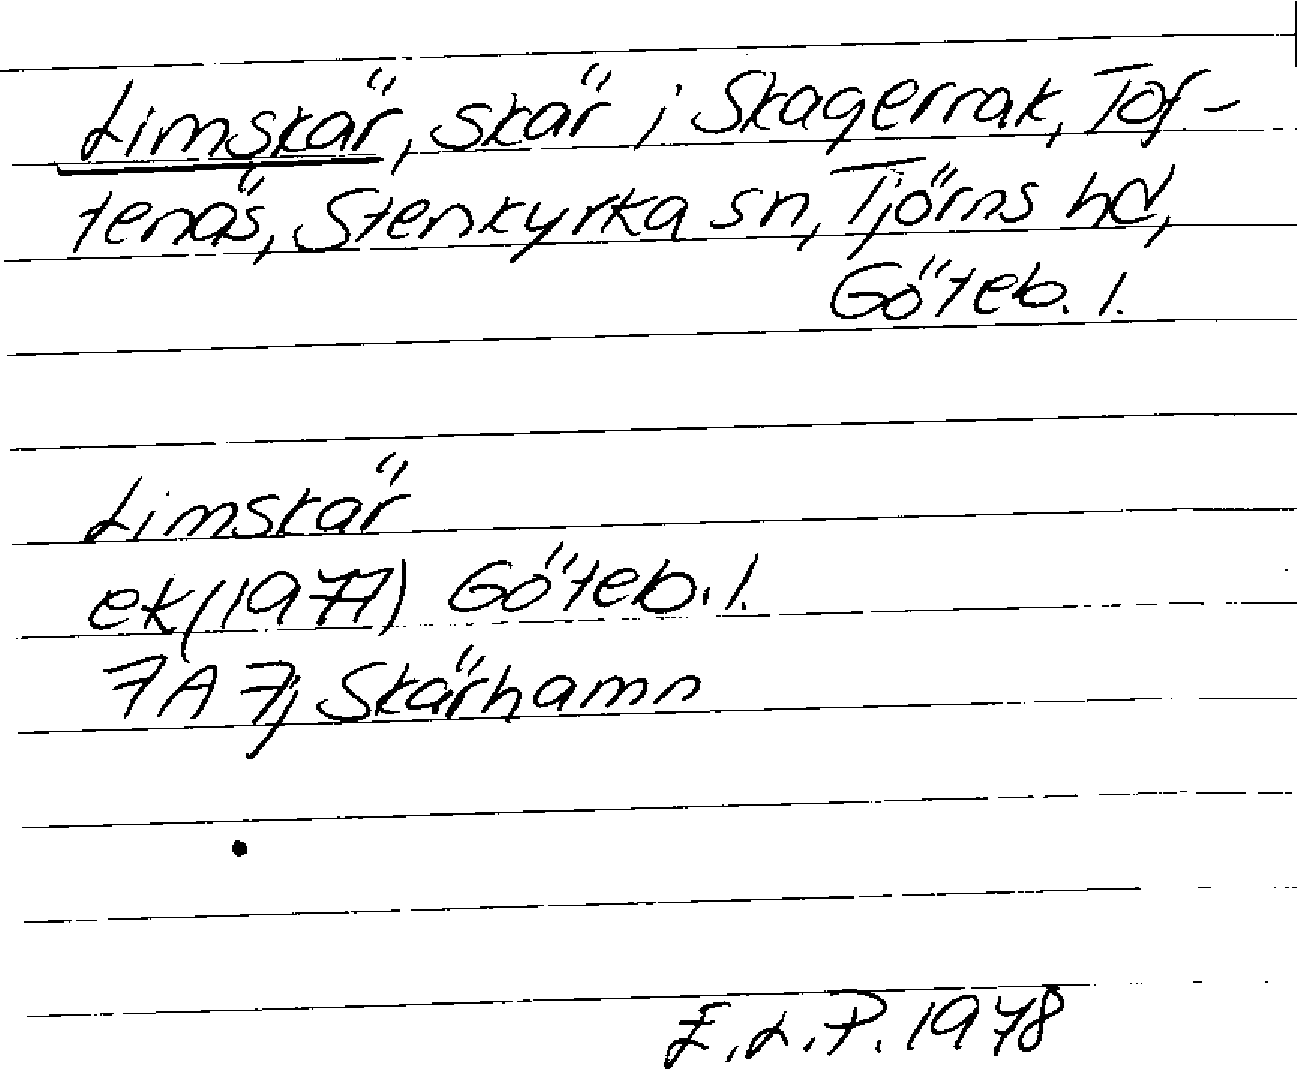 Limskär, skär i Skagerrak, Tof-
tenäs, Stenkyrka sn, Tjörns hd,
Göteb. l.
Limskär
ek (1977) Göteb. l.
7A 7j Skärhamn
E.L.P. 1978